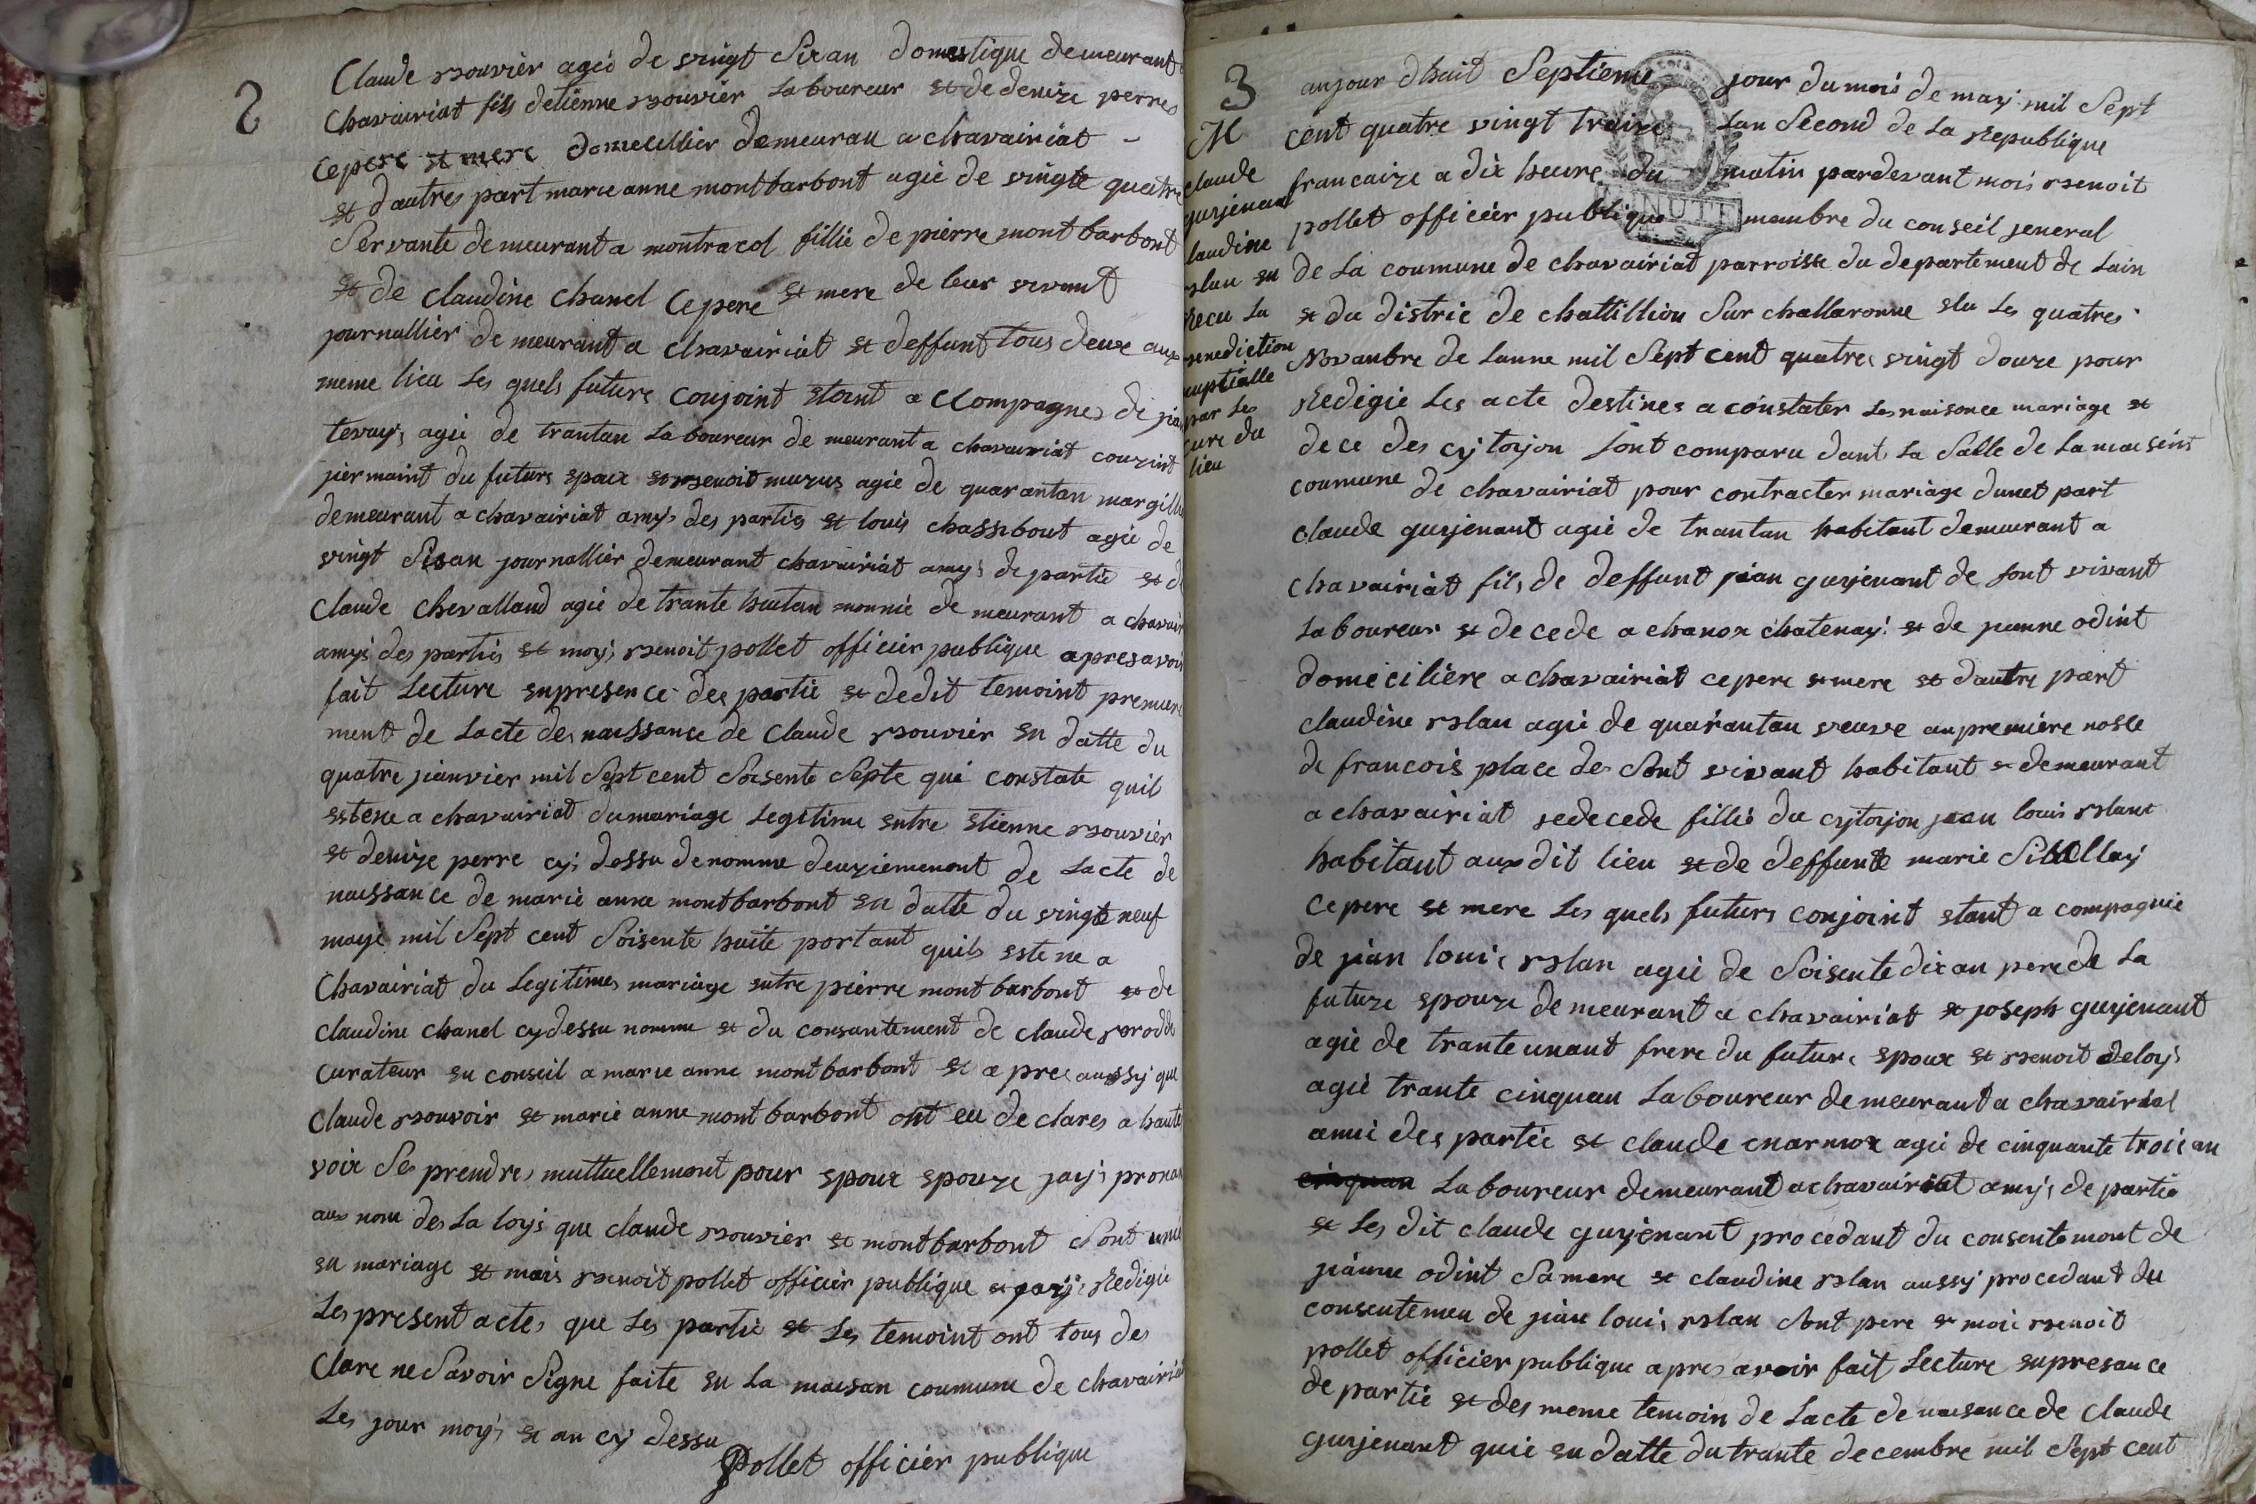 2
Claude rouvier agié de vingt Sixan domestique demeurant
Chavairiat fils detienne rouvier Laboureur et de denize perres
cepere et mere domecillier demeuran a chavairiat -
et dautres part marie anne montbarbont agié de vingte quatre
Servante demeurant a montracol fillie de pierre montbarbont
et de claudine Chanel cepere et mere de leur vivant
journallier demeurant a chavairiat et deffunt tous deux aux
meme lieu Les quels future conjoint etant a Compagnes de
agié de trantan Laboureur demeurant a chavairiat couzint
jiermaint du futurs epoux et renoit muzus agié de quarantan
demeurant a chavairiat amys des parties et louis chassibout agié de
vingt Sixan journallier demeurant chavairiat amys de partie et
Claude chevalland agié de trante huitan demeurant a
amys des partis et moys renoit pollet officier publique apres avoir
fait Lecture enpresence des partie et dedit temoint
ment de Lacte des naissance de Claude rouvier en datte du
quatre jianvier mil Sept cent Soisente Septe qui constate quil
estene a chavairiat dumariage Legitime entre etienne rouvier
et denize perre cy dessu denomme deuziemement de Lacte de
naissance de marie anne montbarbont en datte du vingte neuf
maye mil Sept cent Soisente huite portant quils estene a
Chavairiat du Legitimes mariage entre pierre montbarbont et de
claudine chanel cydessu nomme et du consantement de claude
curateur en conseil a marie anne montbarbont et apres aussy que
Claude rouvoir et marie anne montbarbont ont eu declares a haute
voix Se prendres muttuellement pour epoux epouze jays
aux nom des La loys que claude rouvier et montbarbont Sont
en mariage et mois renoit pollet officier publique et jays Redigié
Les present actes que Les partie et Les temoint ont tous des
Clare ne Savoir Signe faite en La maison coumune de chavairiat
Les jour moys et an cy dessu
Pollet officier publique
3
M
claude
guyjenant
claudine
rlan en
Recu La
renediction
nuptialle
par Les
cure du
lieu
aujour dhuit Septieme jour du mois de may mil Sept
cent quatre vingt traize Lan Second de La Republique
francaize a dix heure du matin pardevant mois renoit
pollet officier publique membre du conseil jeneral
de La coumune de chavairiat parroisse du departement de Lain
et du distric de chattillion Sur challaronne elu Les quatres
Novanbre de Lanne mil Sept cent quatres vingt douze pour
Redigié Les acte destines a constater Les naisance mariage et
dece des cytoyon Sont comparu dant La Salle de La maisont
coumune de chavairiat pour contracter mariage dunet part
claude guyjenant agié de trantan habitant demeurant a
chavairiat fils de deffunt jian guyjenant de Sont vivant
Laboureur et decede a chanox chatenay et de jeanne odint
domeciliere a chavairiat cepere et mere et dautre part
claudine rlan agié de quarantan veuve anpremiere nosse
de francois place de Sont vivant habitant et demeurant
a chavairiat fillié du cytoyon jean louis rlant
habitant aux dit lieu et de deffunte marie
cepere et mere Les quels futurs conjoint etant a compagnie
de jian louis rlan agié de Soisente dixan pere de La
future epouze demeurant a chavairiat et joseph guyjenant
agié de trante unant frere du future epoux et renoit deloys
agié trante cinquan Laboureur demeurant a chavairiat
amie des partie et claude agié de cinquante troisan
Laboureur demeurant a chavairiat amys de partie
et Les dit claude guyjenant procedant du consentemont de
jianne odint Samere et claudine rlan aussy procedant du
consentemen de jian louis rlan Sont pere et mois renoit
pollet officier publique apres avoir fait Lecture enpresance
de partie et des meme temoin de Lacte denaisance de claude
guyjenant quie en datte du trante decembre mil Sept cent